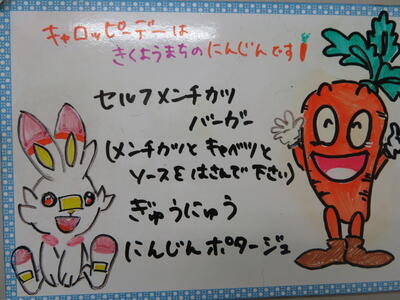 キャロッピーデーは
きくようまちのにんじんです
セルフメンチカツ
バーガー
(メンチカツと キャベツと
ソースをはさんで下さい)
ぎゅうにゅう
にんじんポタージュ